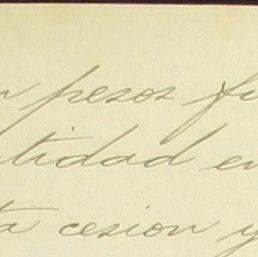 n pesos fu
ntidad en
ta cesion y